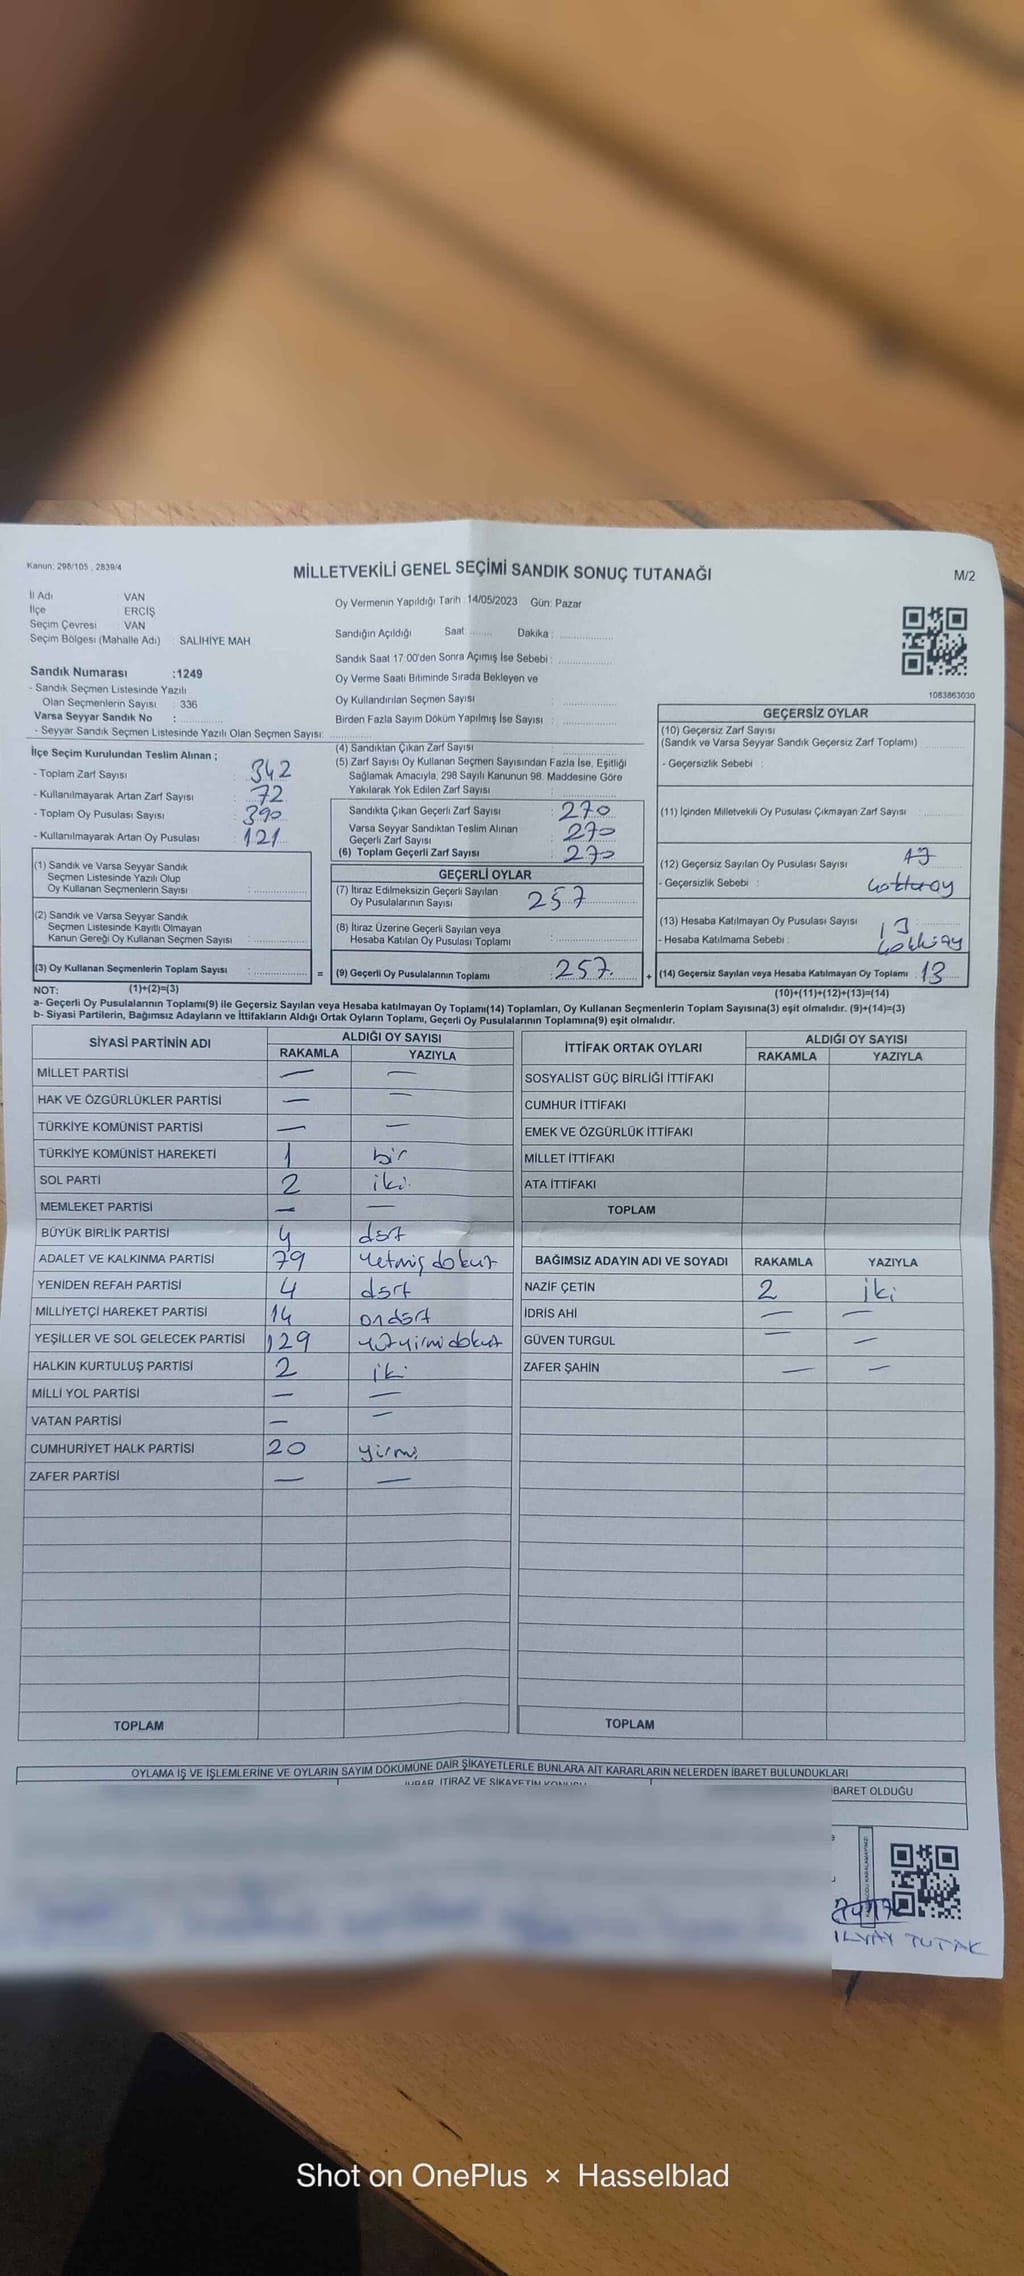 Kanun: 298/105 , 2839/4
MİLLETVEKİLİ GENEL SEÇİMİ SANDIK SONUÇ TUTANAĞI
M/2
İl Adı : VAN
İlçe : ERCİŞ
Seçim Çevresi : VAN
Seçim Bölgesi (Mahalle Adı) : SALİHİYE MAH
Sandık Numarası :1249
- Sandık Seçmen Listesinde Yazılı
Olan Seçmenlerin Sayısı : 336
Varsa Seyyar Sandık No :
- Seyyar Sandık Seçmen Listesinde Yazılı Olan Seçmen Sayısı:
Oy Vermenin Yapıldığı Tarih :14/05/2023 Gün: Pazar
Sandığın Açıldığı Saat: Dakika :
Sandık Saat 17:00'den Sonra Açımış İse Sebebi :
Oy Verme Saati Bitiminde Sırada Bekleyen ve
Oy Kullandırılan Seçmen Sayısı
Birden Fazla Sayım Döküm Yapılmış İse Sayısı :
1083863030
İlçe Seçim Kurulundan Teslim Alınan ;
- Toplam Zarf Sayısı : 342
- Kullanılmayarak Artan Zarf Sayısı : 72
- Toplam Oy Pusulası Sayısı : 390
- Kullanılmayarak Artan Oy Pusulası : 121
(1) Sandık ve Varsa Seyyar Sandık
Seçmen Listesinde Yazılı Olup
Oy Kullanan Seçmenlerin Sayısı :
(2) Sandık ve Varsa Seyyar Sandık
Seçmen Listesinde Kayıtlı Olmayan
Kanun Gereği Oy Kullanan Seçmen Sayısı :
(3) Oy Kullanan Seçmenlerin Toplam Sayısı : =
(4) Sandıktan Çıkan Zarf Sayısı :
(5) Zarf Sayısı Oy Kullanan Seçmen Sayısından Fazla İse, Eşitliği
Sağlamak Amacıyla, 298 Sayılı Kanunun 98. Maddesine Göre
Yakılarak Yok Edilen Zarf Sayısı :
Sandıkta Çıkan Geçerli Zarf Sayısı : 270
Varsa Seyyar Sandıktan Teslim Alınan
Geçerli Zarf Sayısı : 270
(6) Toplam Geçerli Zarf Sayısı : 270
GEÇERLİ OYLAR
(7) İtiraz Edilmeksizin Geçerli Sayılan
Oy Pusulalarının Sayısı : 257
(8) İtiraz Üzerine Geçerli Sayılan veya
Hesaba Katılan Oy Pusulası Toplamı :
(9) Geçerli Oy Pusulalarının Toplamı : 257 +
GEÇERSİZ OYLAR
(10) Geçersiz Zarf Sayısı
(Sandık ve Varsa Seyyar Sandık Geçersiz Zarf Toplamı) :
- Geçersizlik Sebebi :
(11) İçinden Milletvekili Oy Pusulası Çıkmayan Zarf Sayısı :
(12) Geçersiz Sayılan Oy Pusulası Sayısı :
- Geçersizlik Sebebi :
(13) Hesaba Katılmayan Oy Pusulası Sayısı : 13
- Hesaba Katılmama Sebebi :
(14) Geçersiz Sayılan veya Hesaba Katılmayan Oy Toplamı : 13
NOT: (1)+(2)=(3)
(10)+(11)+(12)+(13)=(14)
a- Geçerli Oy Pusulalarının Toplamı(9) ile Geçersiz Sayılan veya Hesaba katılmayan Oy Toplamı(14) Toplamları, Oy Kullanan Seçmenlerin Toplam Sayısına(3) eşit olmalıdır. (9)+(14)=(3)
b- Siyasi Partilerin, Bağımsız Adayların ve İttifakların Aldığı Ortak Oyların Toplamı, Geçerli Oy Pusulalarının Toplamına(9) eşit olmalıdır.
SİYASİ PARTİNİN ADI ALDIĞI OY SAYISI
RAKAMLA YAZIYLA
MİLLET PARTİSİ — —
HAK VE ÖZGÜRLÜKLER PARTİSİ — —
TÜRKİYE KOMÜNİST PARTİSİ — —
TÜRKİYE KOMÜNİST HAREKETİ 1 bir
SOL PARTİ 2 iki
MEMLEKET PARTİSİ — —
BÜYÜK BİRLİK PARTİSİ 4 dört
ADALET VE KALKINMA PARTİSİ 79 yetmiş dokuz
YENİDEN REFAH PARTİSİ 4 dört
MİLLİYETÇİ HAREKET PARTİSİ 14 ondört
YEŞİLLER VE SOL GELECEK PARTİSİ 129 yüzyirmidokuz
HALKIN KURTULUŞ PARTİSİ 2 iki
MİLLİ YOL PARTİSİ — —
VATAN PARTİSİ — —
CUMHURİYET HALK PARTİSİ 20 yirmi
ZAFER PARTİSİ — —
TOPLAM
İTTİFAK ORTAK OYLARI ALDIĞI OY SAYISI
RAKAMLA YAZIYLA
SOSYALİST GÜÇ BİRLİĞİ İTTİFAKI
CUMHUR İTTİFAKI
EMEK VE ÖZGÜRLÜK İTTİFAKI
MİLLET İTTİFAKI
ATA İTTİFAKI
TOPLAM
BAĞIMSIZ ADAYIN ADI VE SOYADI RAKAMLA YAZIYLA
NAZİF ÇETİN 2 iki
İDRİS AHİ — —
GÜVEN TURGUL — —
ZAFER ŞAHİN — —
TOPLAM
OYLAMA İŞ VE İŞLEMLERİNE VE OYLARIN SAYIM DÖKÜMÜNE DAİR ŞİKAYETLERLE BUNLARA AİT KARARLARIN NELERDEN İBARET BULUNDUKLARI
İTİRAZ VE ŞİKAYETİN KONUSU
İBARET OLDUĞU
İLYAY TUTAK
Shot on OnePlus × Hasselblad